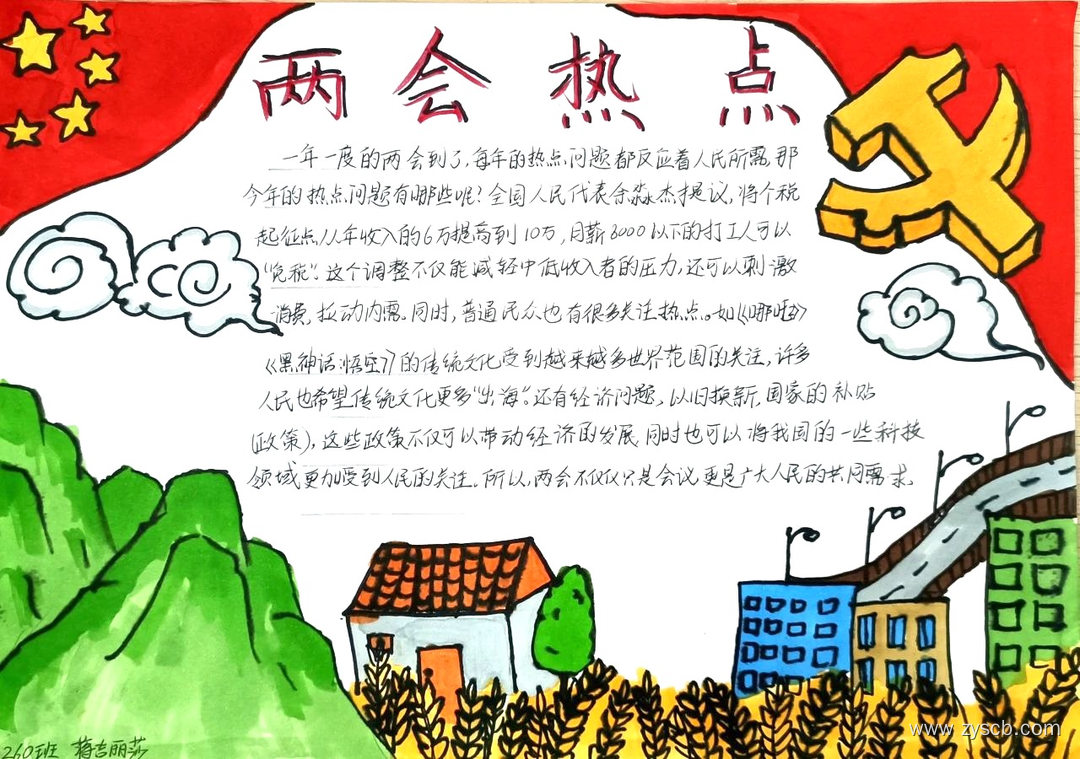 两会热点
一年一度的两会到了,每年的热点问题都反应着人民所需,那
今年的热点问题有哪些呢?全国人民代表余淼杰提议,将个税
起征点从年收入的6万提高到10万,月薪8000以下的打工人可以
“免税”.这个调整不仅能减轻中低收入者的压力,还可以刺激
消费,拉动内需。同时,普通民众也有很多关注热点。如《哪吒》
《黑神话:悟空》的传统文化受到越来越多世界范围的关注,许多
人民也希望传统文化更多“出海”.还有经济问题,以旧换新,国家的补贴
(政策),这些政策不仅可以带动经济的发展,同时也可以将我国的一些科技
领域更加受到人民的关注。所以,两会不仅仅只是会议,更是广大人民的共同需求.
260班 梅吉丽莎
www.zyscb.com